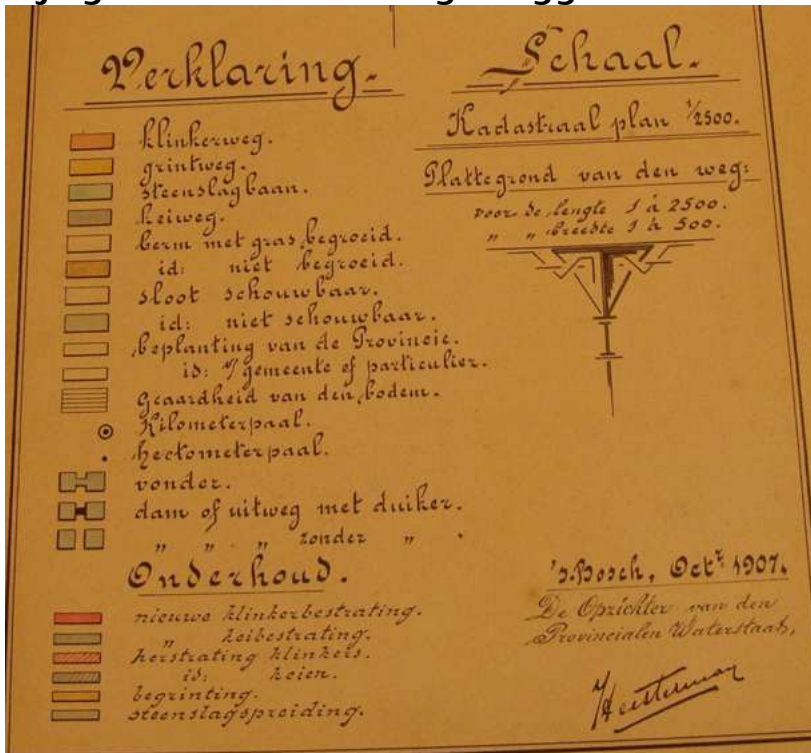 Verklaring.
klinkerweg.
grintweg.
steenslagbaan.
keiweg.
berm met gras begroeid.
id: niet begroeid.
sloot schouwbaar.
id: niet schouwbaar.
beplanting van de Provincie.
id: gemeente of particulier.
Geaardheid van den bodem.
Kilometerpaal.
hectometerpaal.
vonder.
dam of uitweg met duiker.
" " " zonder " .
Onderhoud.
nieuwe klinkerbestrating.
" keibestrating.
herstrating klinkers.
id: keien.
begrinting.
steenslagspreiding.
Schaal.
Kadastraal plan 1/2500.
Plattegrond van den weg:
voor de lengte 1 à 2500.
" " breedte 1 à 500.
's-Bosch, Octr 1907.
De Opzichter van den
Provincialen Waterstaat,